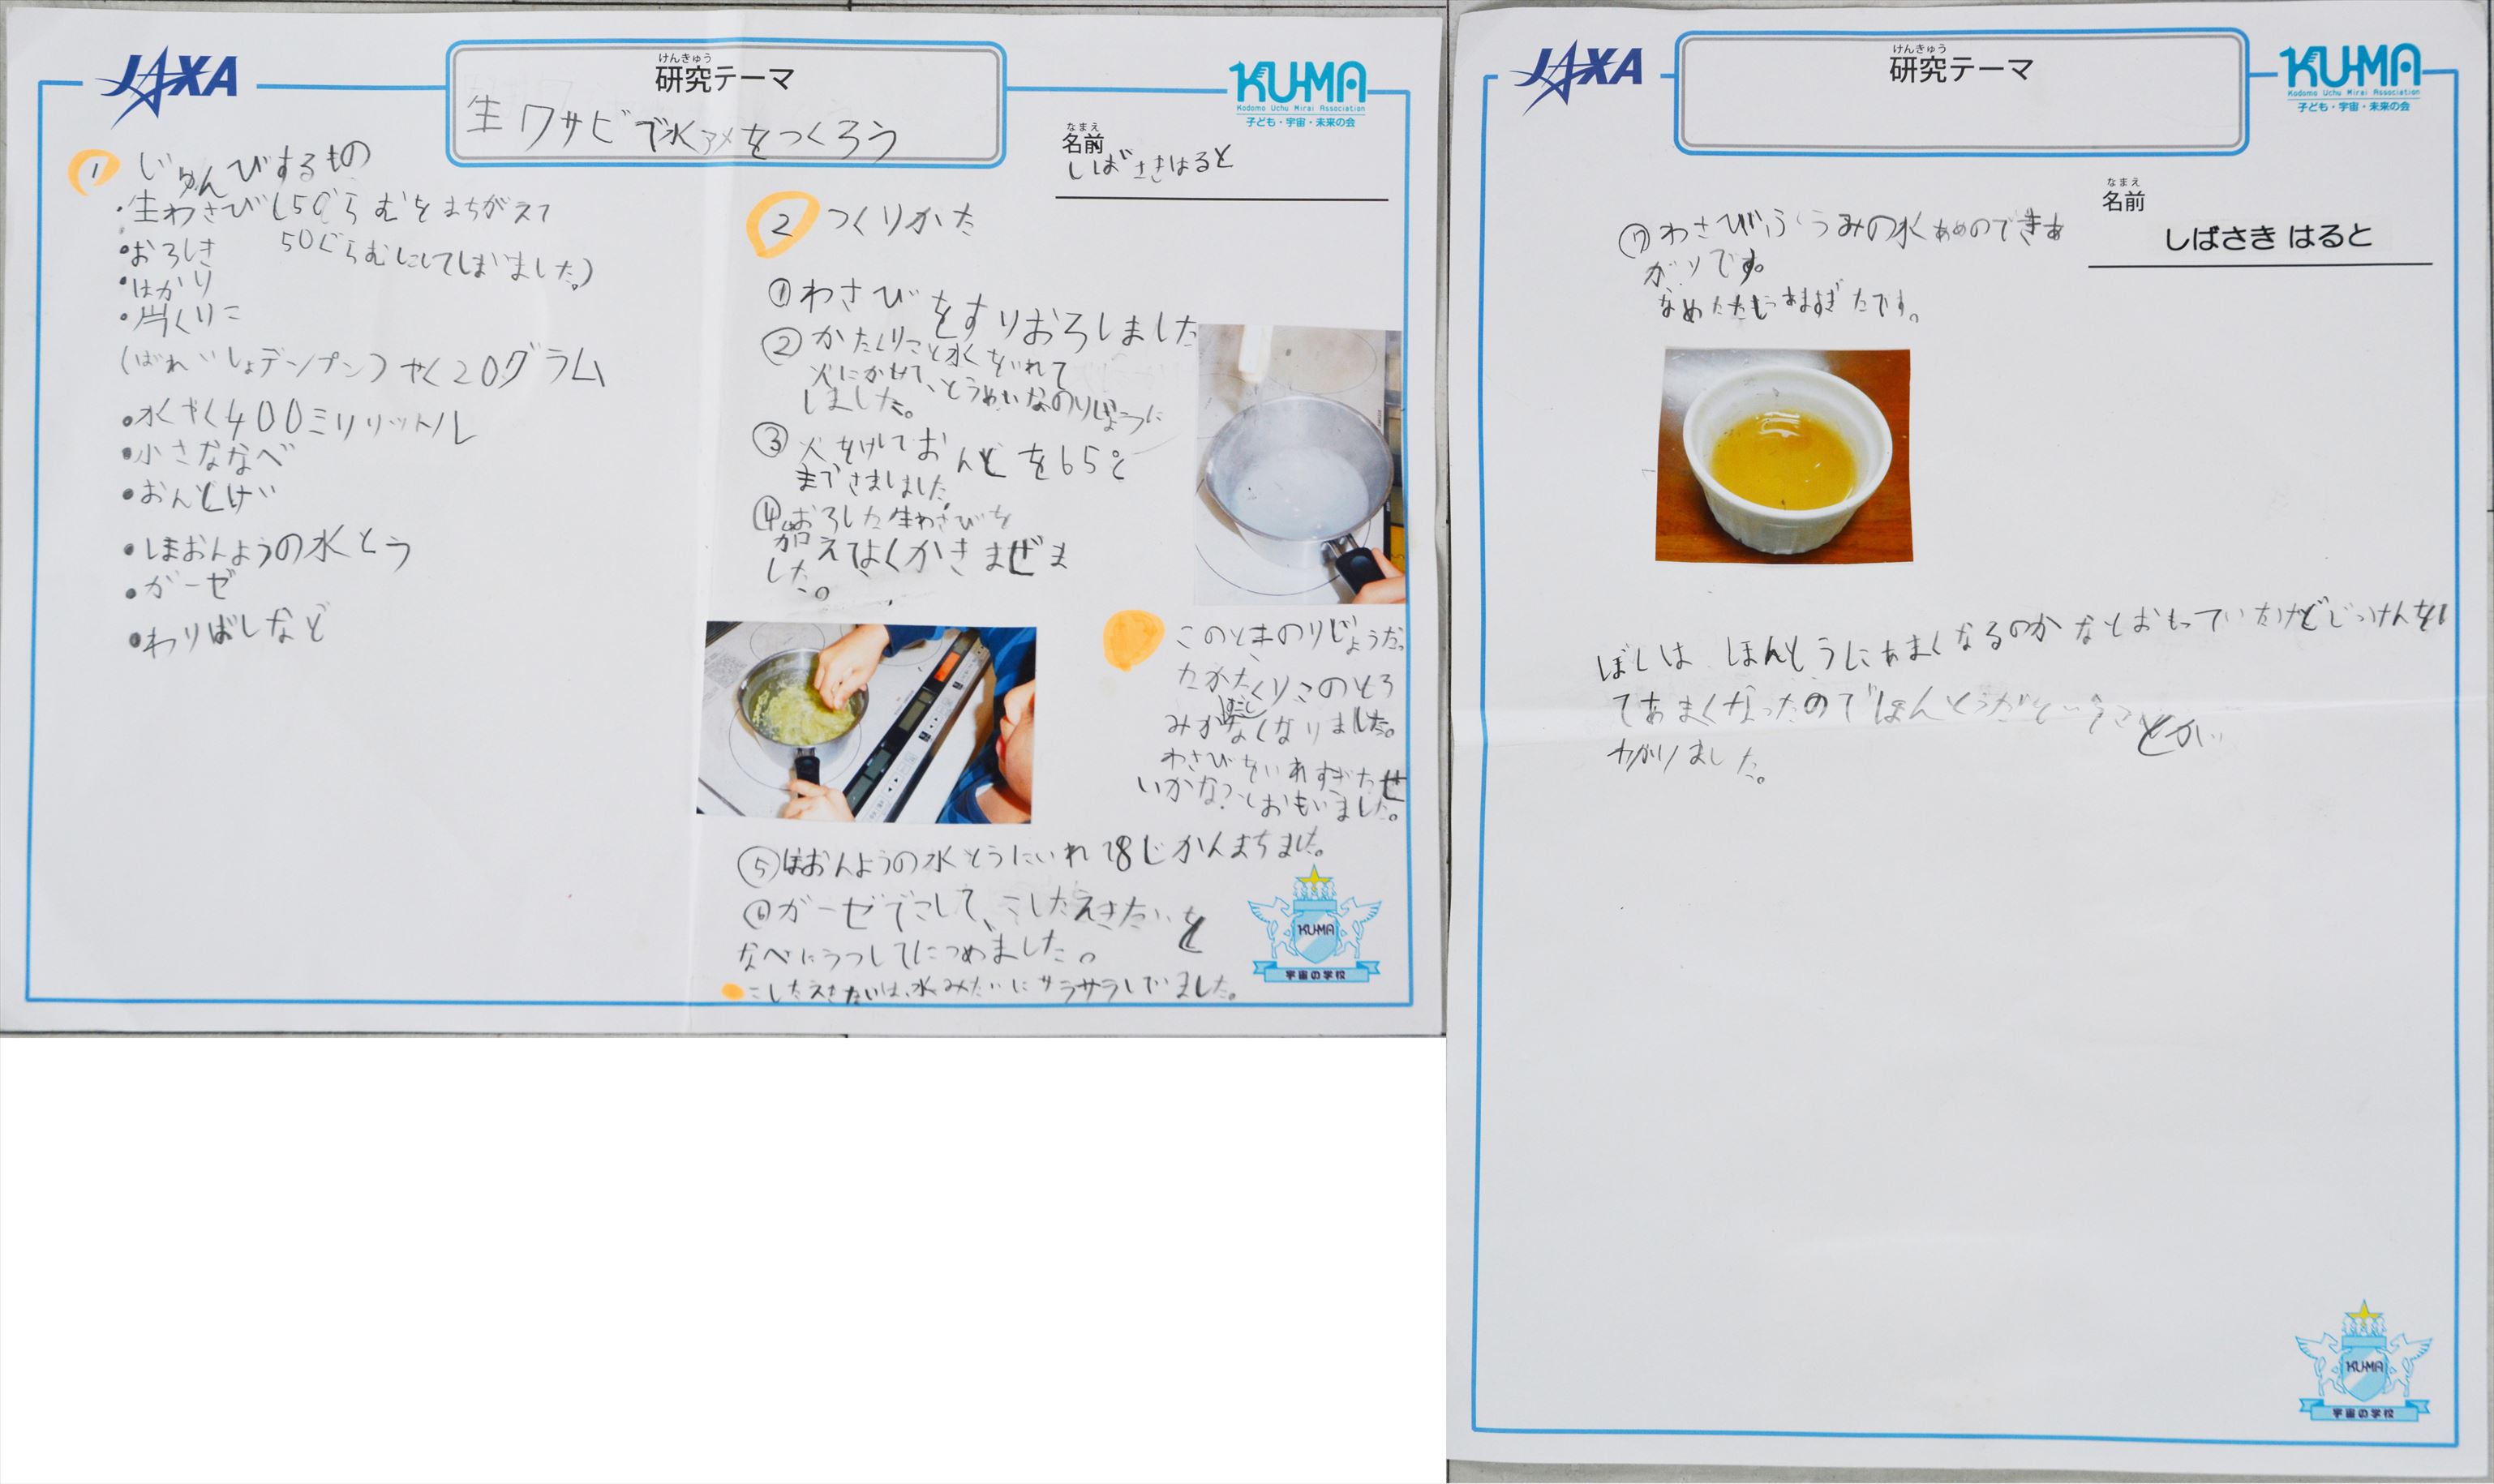 JAXA
けんきゅう
研究テーマ
生ワサビで水アメをつくろう
KU-MA
Kodomo Uchu Mirai Association
子ども・宇宙・未来の会
なまえ
名前
しばさきはると
1 じゅんびするもの
・生わさび(5ぐらむをまちがえて
50ぐらむにしてしまいました。)
・おろしき
・はかり
・片くりこ
(ばれいしょデンプン)やく20グラム
・水やく400ミリリットル
・小さななべ
・おんどけい
・ほおんようの水とう
・ガーゼ
・わりばしなど
2 つくりかた
①わさびをすりおろしました
②かたくりこと水をいれて
火にかせて、とうめいなのりじょうに
しました。
③火をけしておんどを65℃
までさましました。
④おろした生わさびを
加えてよくかきまぜま
した。
このときのりじょうだっ
たかたくりこのとろ
みがすこしなくなりました。
わさびをいれすぎたせ
いかな?とおもいました。
⑤ほおんようの水とうにいれて8じかんまちました。
⑥ガーゼでこして、こしたえきたいを
なべにうつしてにつめました。
こしたえきたいは、水みたいにサラサラしていました。
KU-MA
宇宙の学校
JAXA
けんきゅう
研究テーマ
KU-MA
Kodomo Uchu Mirai Association
子ども・宇宙・未来の会
なまえ
名前
しばさき はると
⑦わさびふうみの水あめのできあ
がりです。
なめたらあますぎたです。
ぼくは ほんとうにあまくなるのかなとおもっていたけどじっけんをし
てあまくなったのでほんとうだということが
わかりました。
KU-MA
宇宙の学校